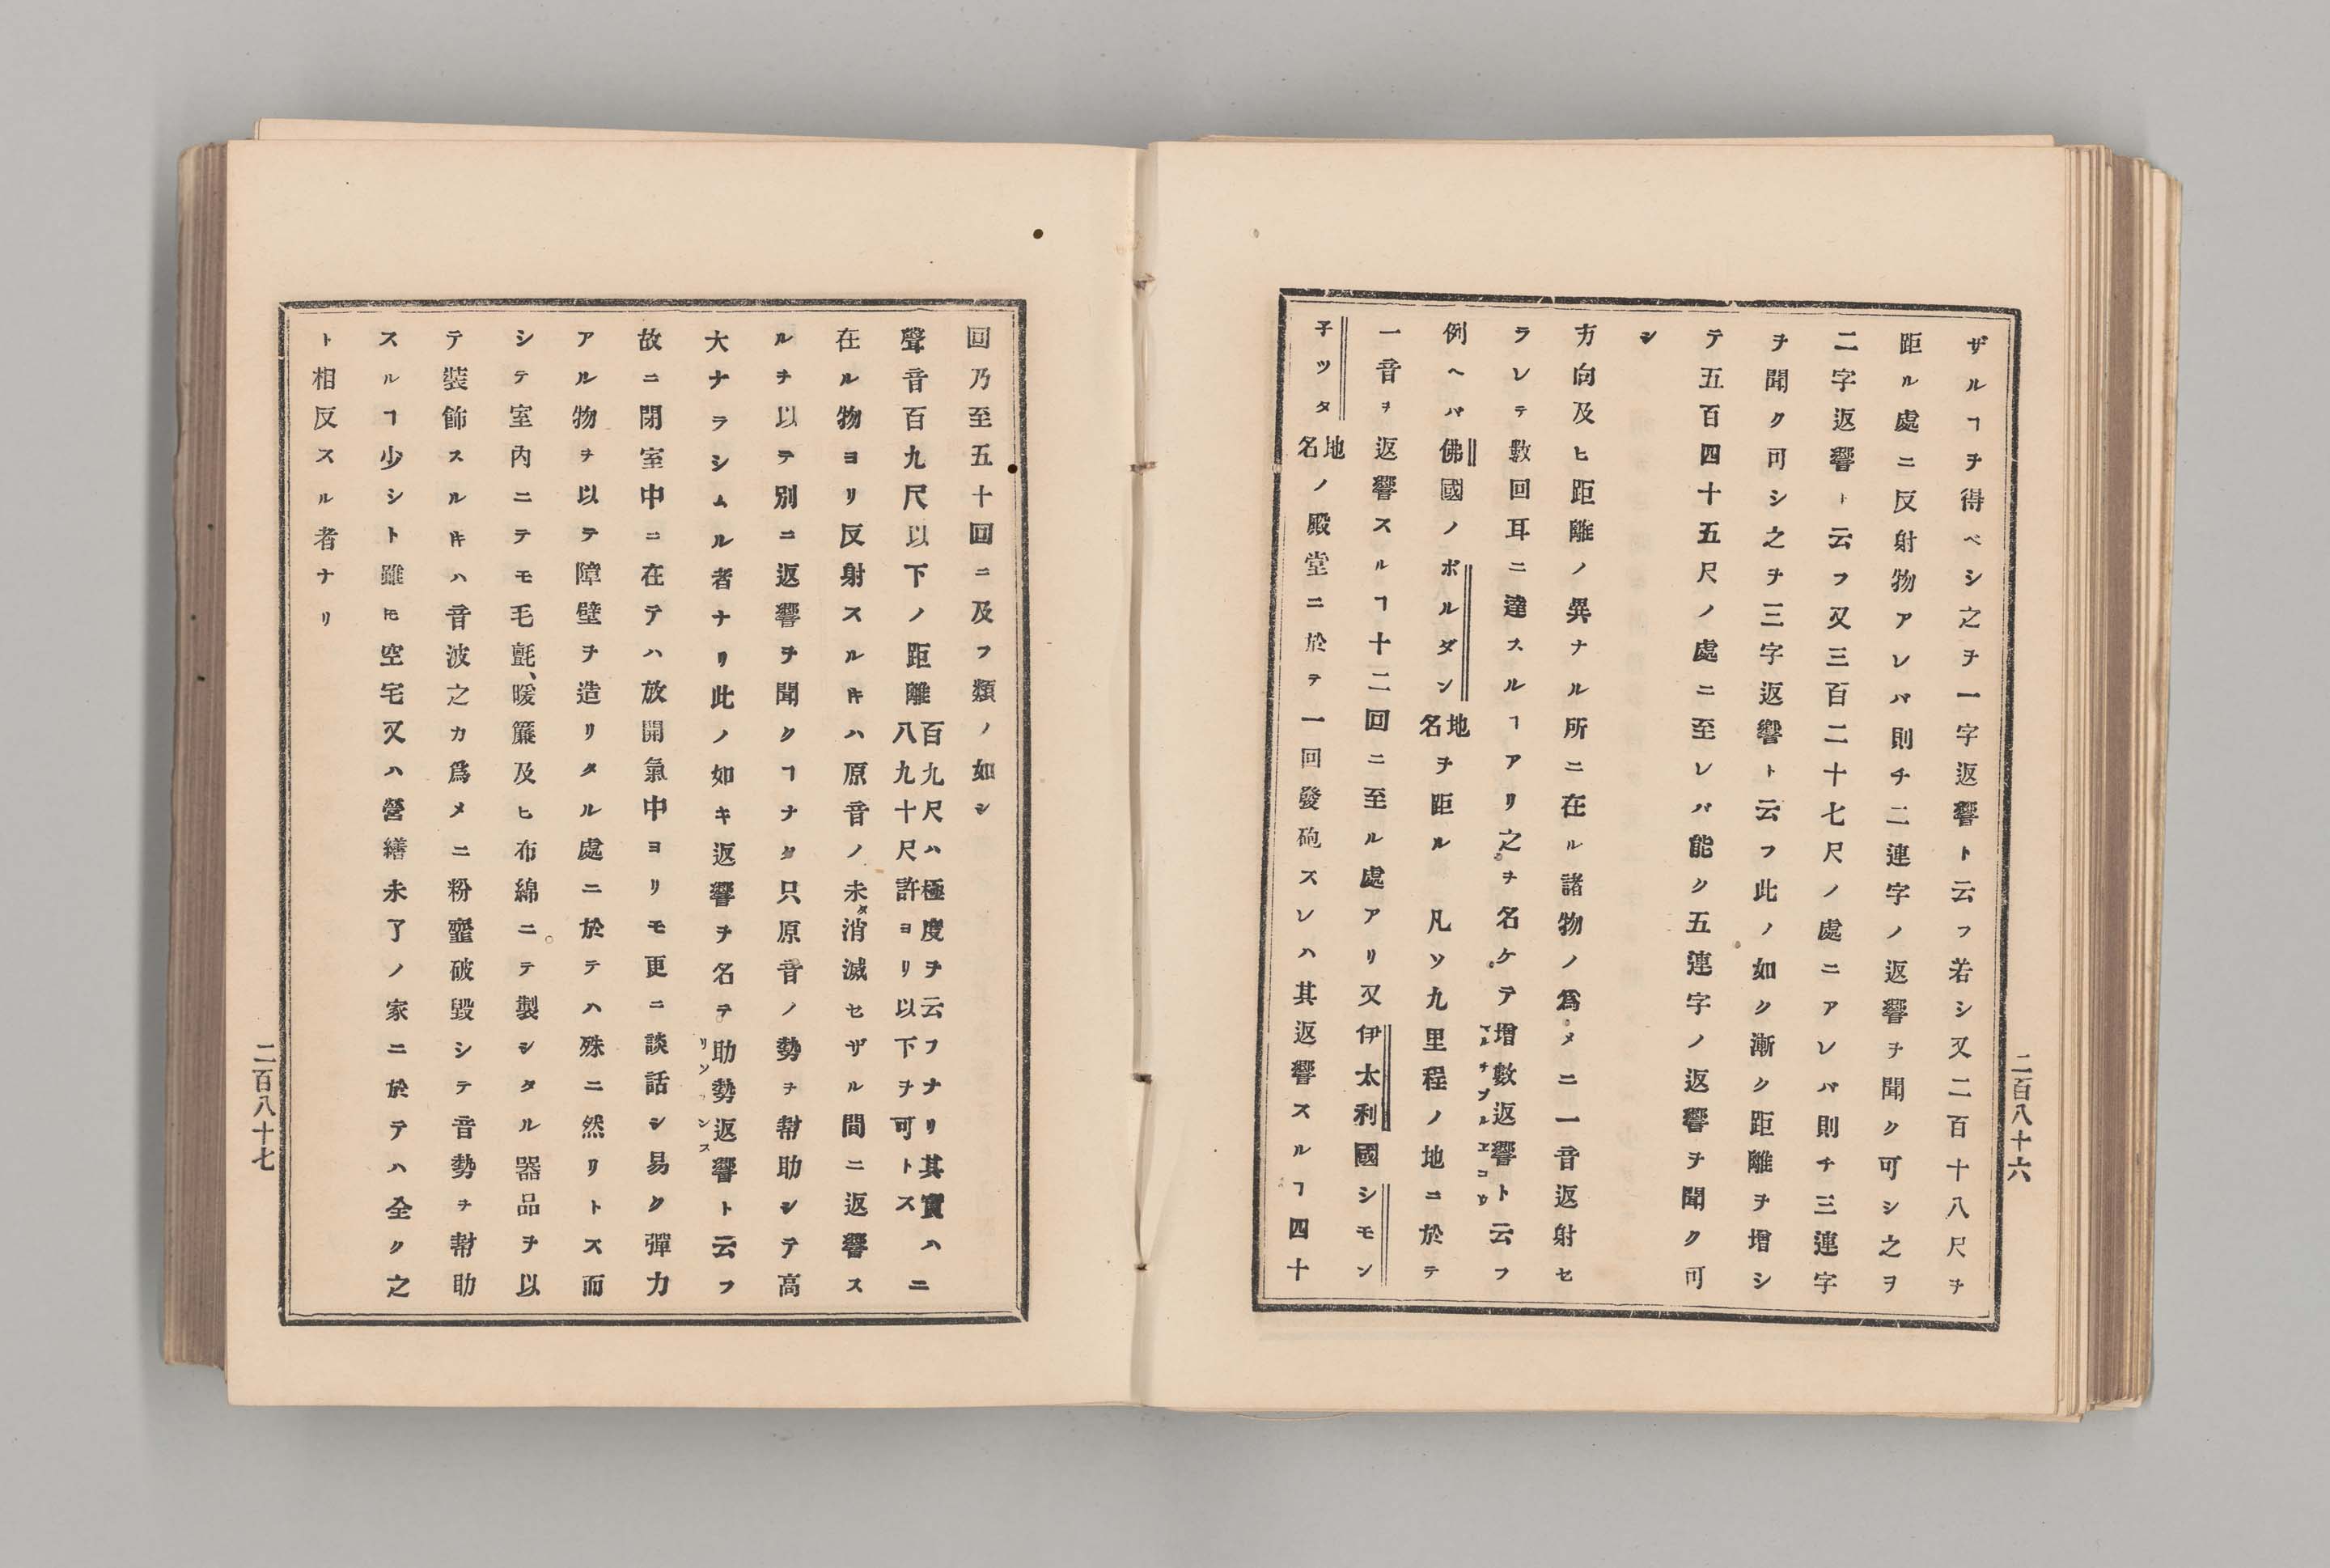 ザルヿヲ得ベシ之ヲ一字返響ト云フ若シ又二百十八尺ヲ
距ル處ニ反射物アレバ則チ二連字ノ返響ヲ聞ク可シ之ヲ
二字返響ト云フ又三百二十七尺ノ處ニアレバ則チ三連字
ヲ聞ク可シ之ヲ三字返響ト云フ此ノ如ク漸ク距離ヲ增シ
テ五百四十五尺ノ處ニ至レバ能ク五連字ノ返響ヲ聞ク可
シ
方向及ヒ距離ノ異ナル所ニ在ル諸物ノ爲メニ一音返射セ
ラレテ數回耳ニ達スルヿアリ之ヲ名ケテ增數返響ト云フ
例ヘバ佛國ノボルダン地名ヲ距ル凡ソ九里程ノ地ニ於テ
一音ヲ返響スルヿ十二回ニ至ル處アリ又伊太利國シモン
子ツタ地名ノ殿堂ニ於テ一回發砲スレハ其返響スルヿ四十
二百八十六
回乃至五十回ニ及フ類ノ如シ
聲音百九尺以下ノ距離百九尺ハ極度ヲ云フナリ其實ハニ八九十尺許ヨリ以下ヲ可トス
在ル物ヨリ反射スルキハ原音ノ未タ消滅セザル間ニ返響ス
ルヲ以テ別ニ返響ヲ聞クヿナク只原音ノ勢ヲ幇助シテ高
大ナラシムル者ナリ此ノ如キ返響ヲ名テ助勢返響ト云フ
故ニ閉室中ニ在テハ放開氣中ヨリモ更ニ談話シ易ク彈力
アル物ヲ以テ障壁ヲ造リタル處ニ於テハ殊ニ然リトス而
シテ室內ニテモ毛氈、暖簾及ヒ布綿ニテ製シタル器品ヲ以
テ裝飾スルキハ音波之カ爲メニ粉韲破毀シテ音勢ヲ幇助
スルヿ少シト雖𪜈空宅又ハ營繕未了ノ家ニ於テハ全ク之
ト相反スル者ナリ
二百八十七